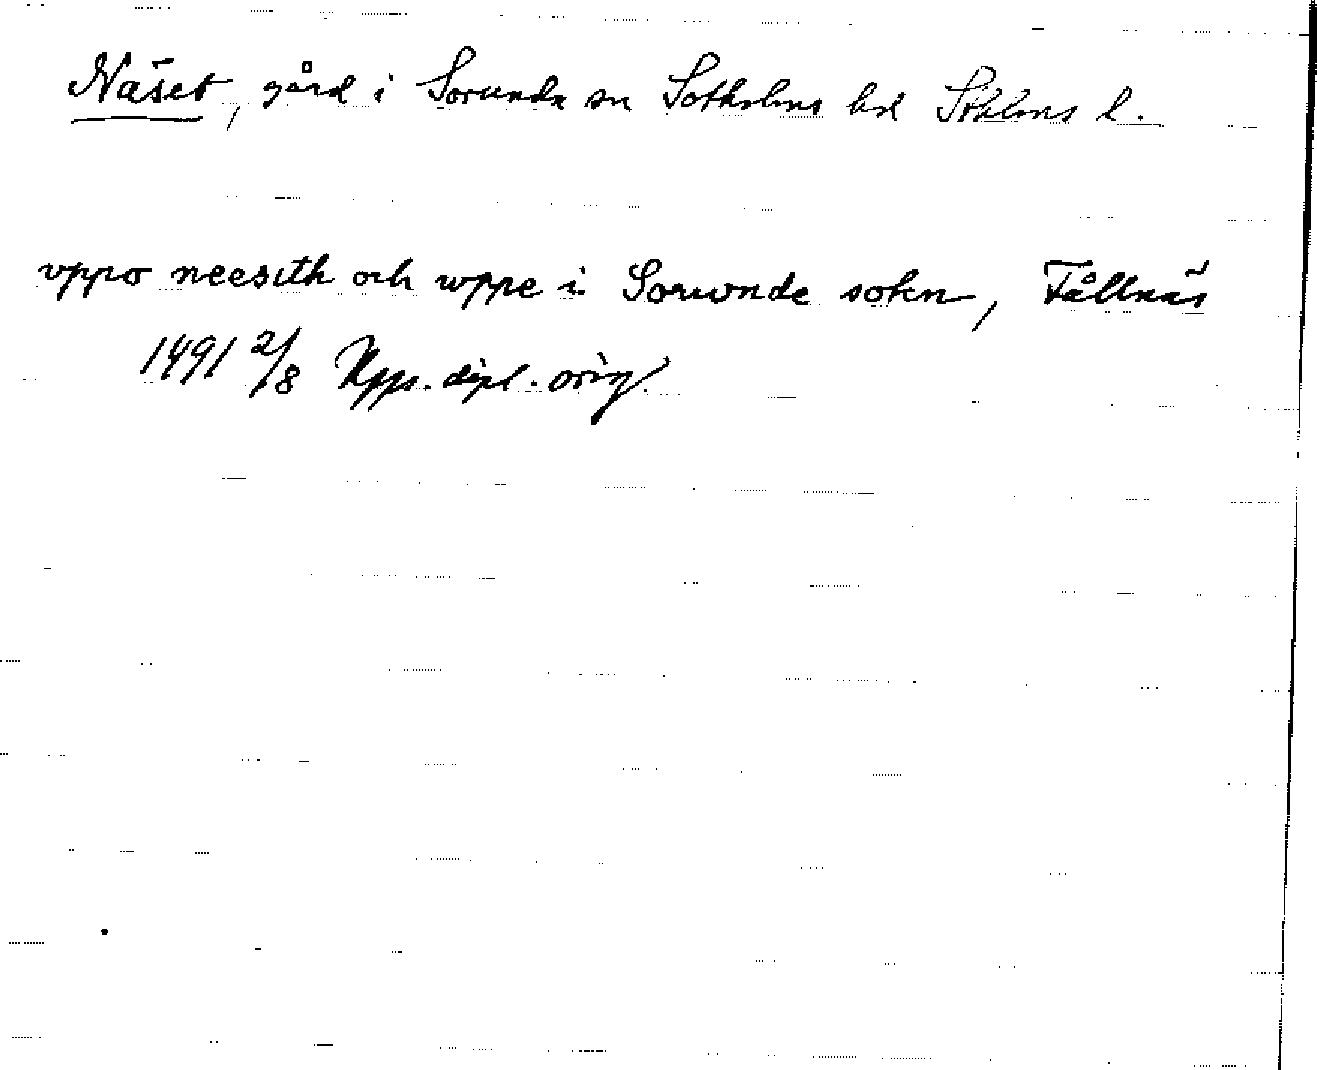 Näset, gård i Sorunda sn Sotholms hd Sthlms l.
vppo neesith och wppe i Sorwnde sokn, Fållnäs
1491 2/8 Upps. dipl. orig.